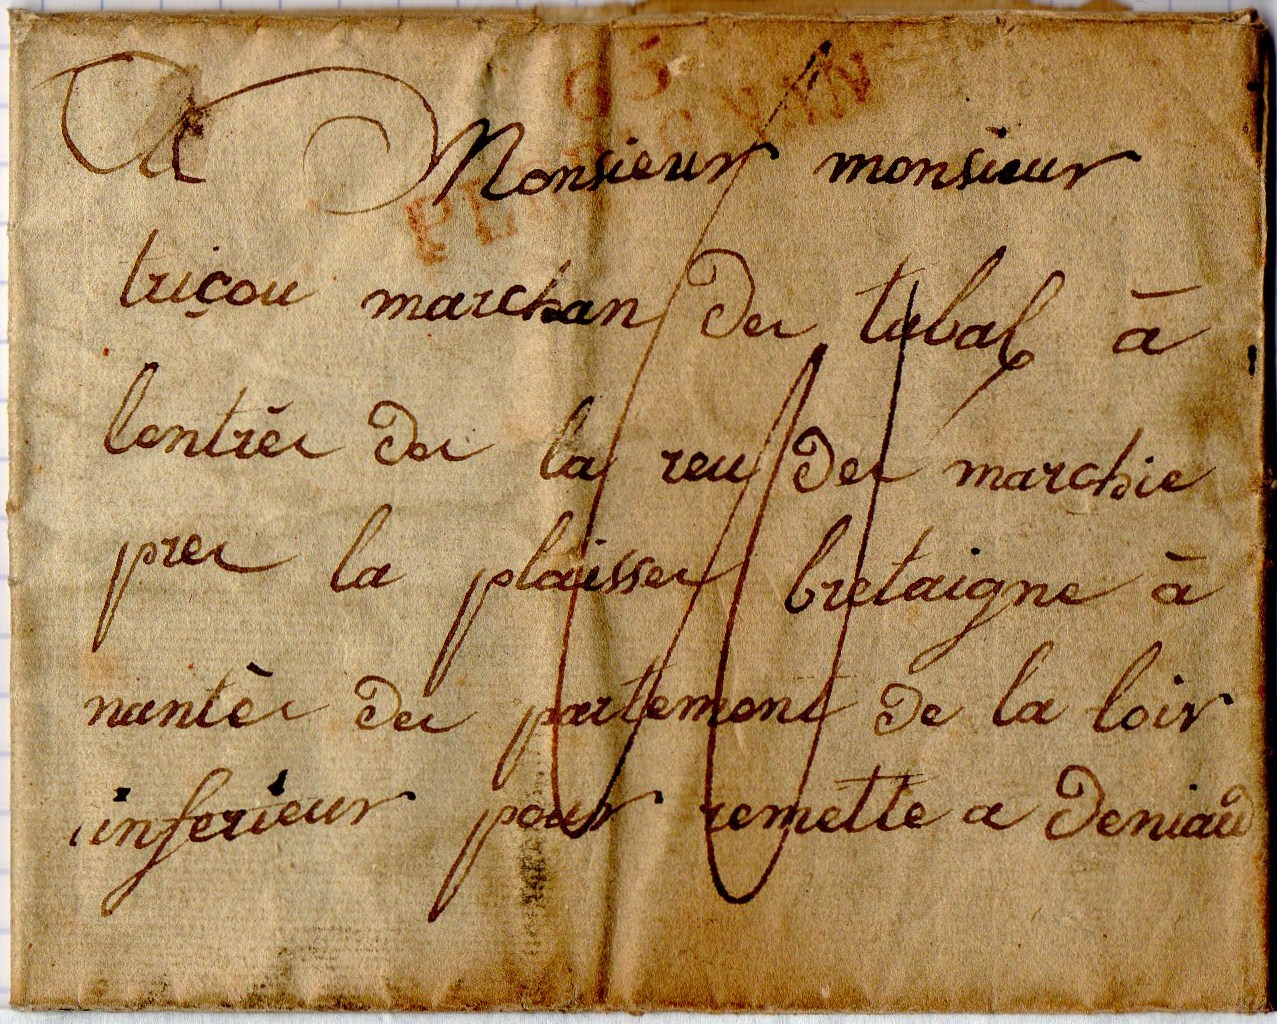 65
PERPIGNAN
A Monsieur monsieur
triçou marchan de tabaf à
lentrée de la reu de marchie
pre la plaisse bretaigne à
nantès de partement de la loir
inferieur pour remette a deniaud